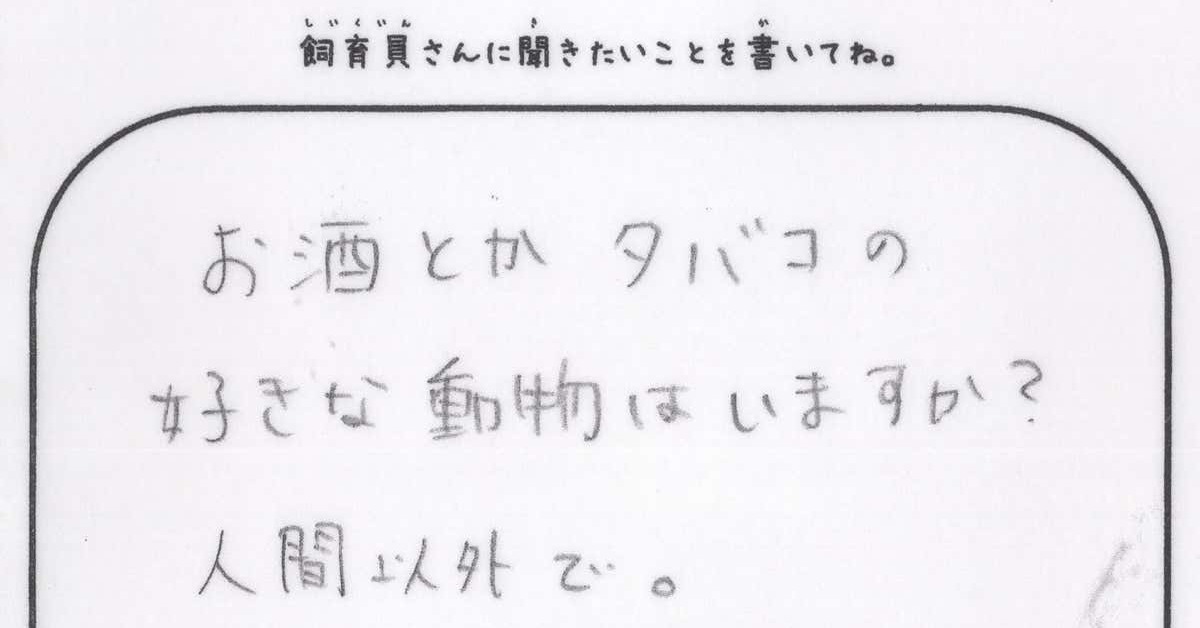 飼育員さんに聞きたいことを書いてね。
お酒とか タバコの
好きな動物はいますか?
人間以外で。